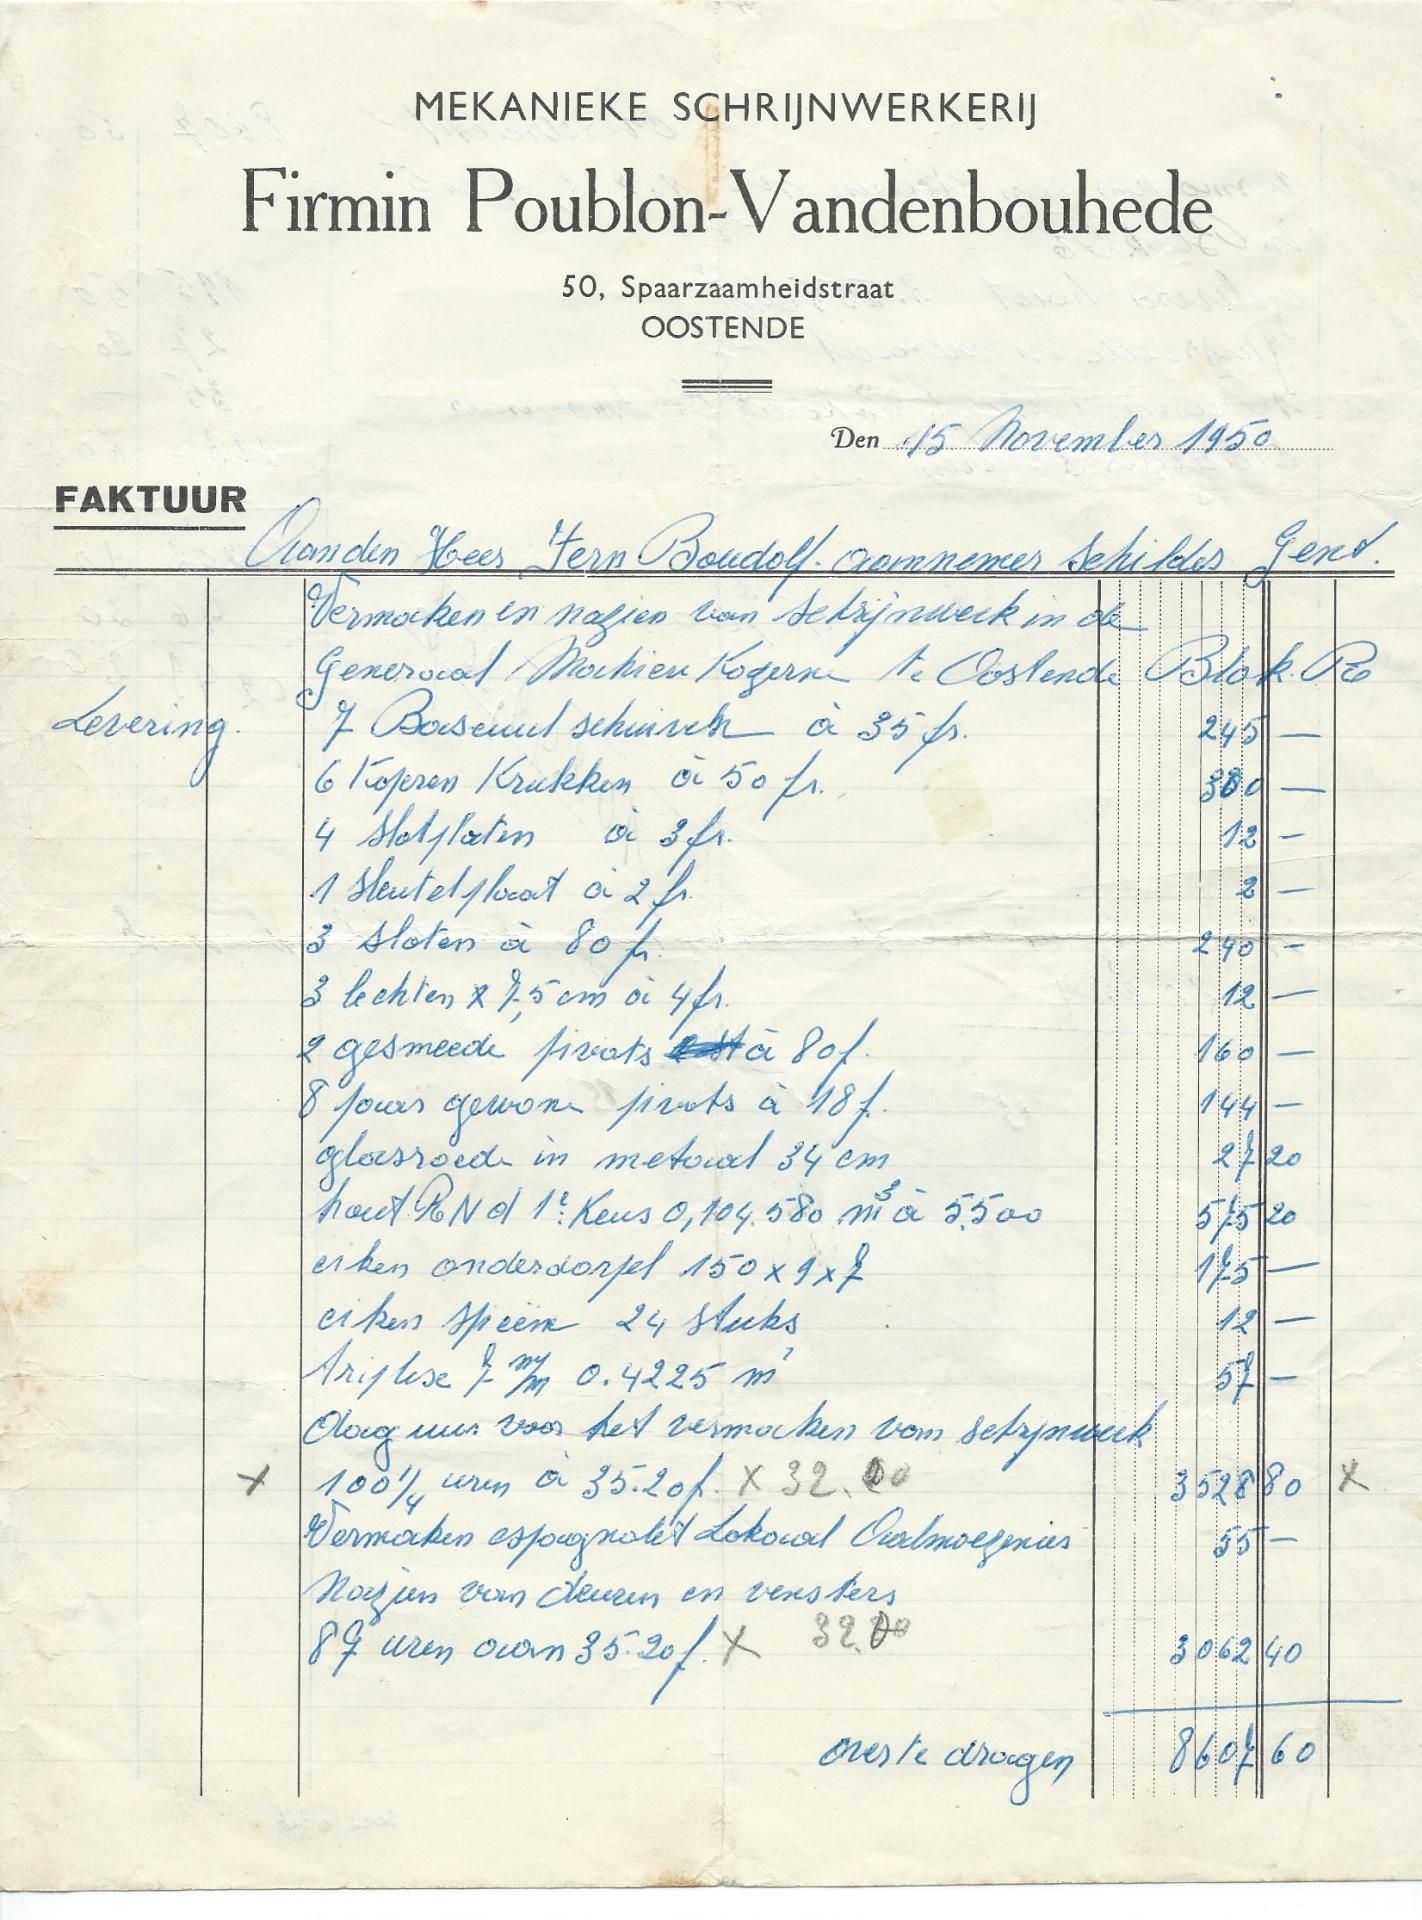 MEKANIEKE SCHRIJNWERKERIJ
Firmin Poublon-Vandenbouhede
50, Spaarzaamheidstraat
OOSTENDE
Den 15 November 1950
FAKTUUR
Aan den Heer Fern Boudolf. aannemer schilder Gent.
Vermaken en nazien van schrijnwerk in de
Generaal Mahieu Kazerne te Oostende Blok.
Levering. 7 schuivels à 35 fr. 245 —
6 Koperen Krukken à 50 fr. 300 —
4 slotplaten à 3 fr. 12 —
1 sleutelplaat à 2 fr. 2 —
3 sloten à 80 fr. 240 —
3 lechten x 7,5 cm à 4 fr. 12 —
2 gesmeede pivots à 80 f. 160 —
8 paar gewone pivots à 18 f. 144 —
glasroede in metaal 34 cm 27 20
hout R N d 1e Keus 0,104.580 m3 à 5.500 575 20
eiken onderdorpel 150 x 9 x 7 175 —
eiken spieën 24 stuks 12 —
triplex 7 m/m 0.4225 m² 57 —
daguur voor het vermaken van schrijnwerk
x 100 1/4 uren à 35.20 f. x 32.00 3528 80 x
Vermaken espagnolet Lokaal Aalmoezenier 55 —
Nazien van deuren en vensters
87 uren aan 35.20 f. x 32.00 3062 40
over te dragen 8607 60